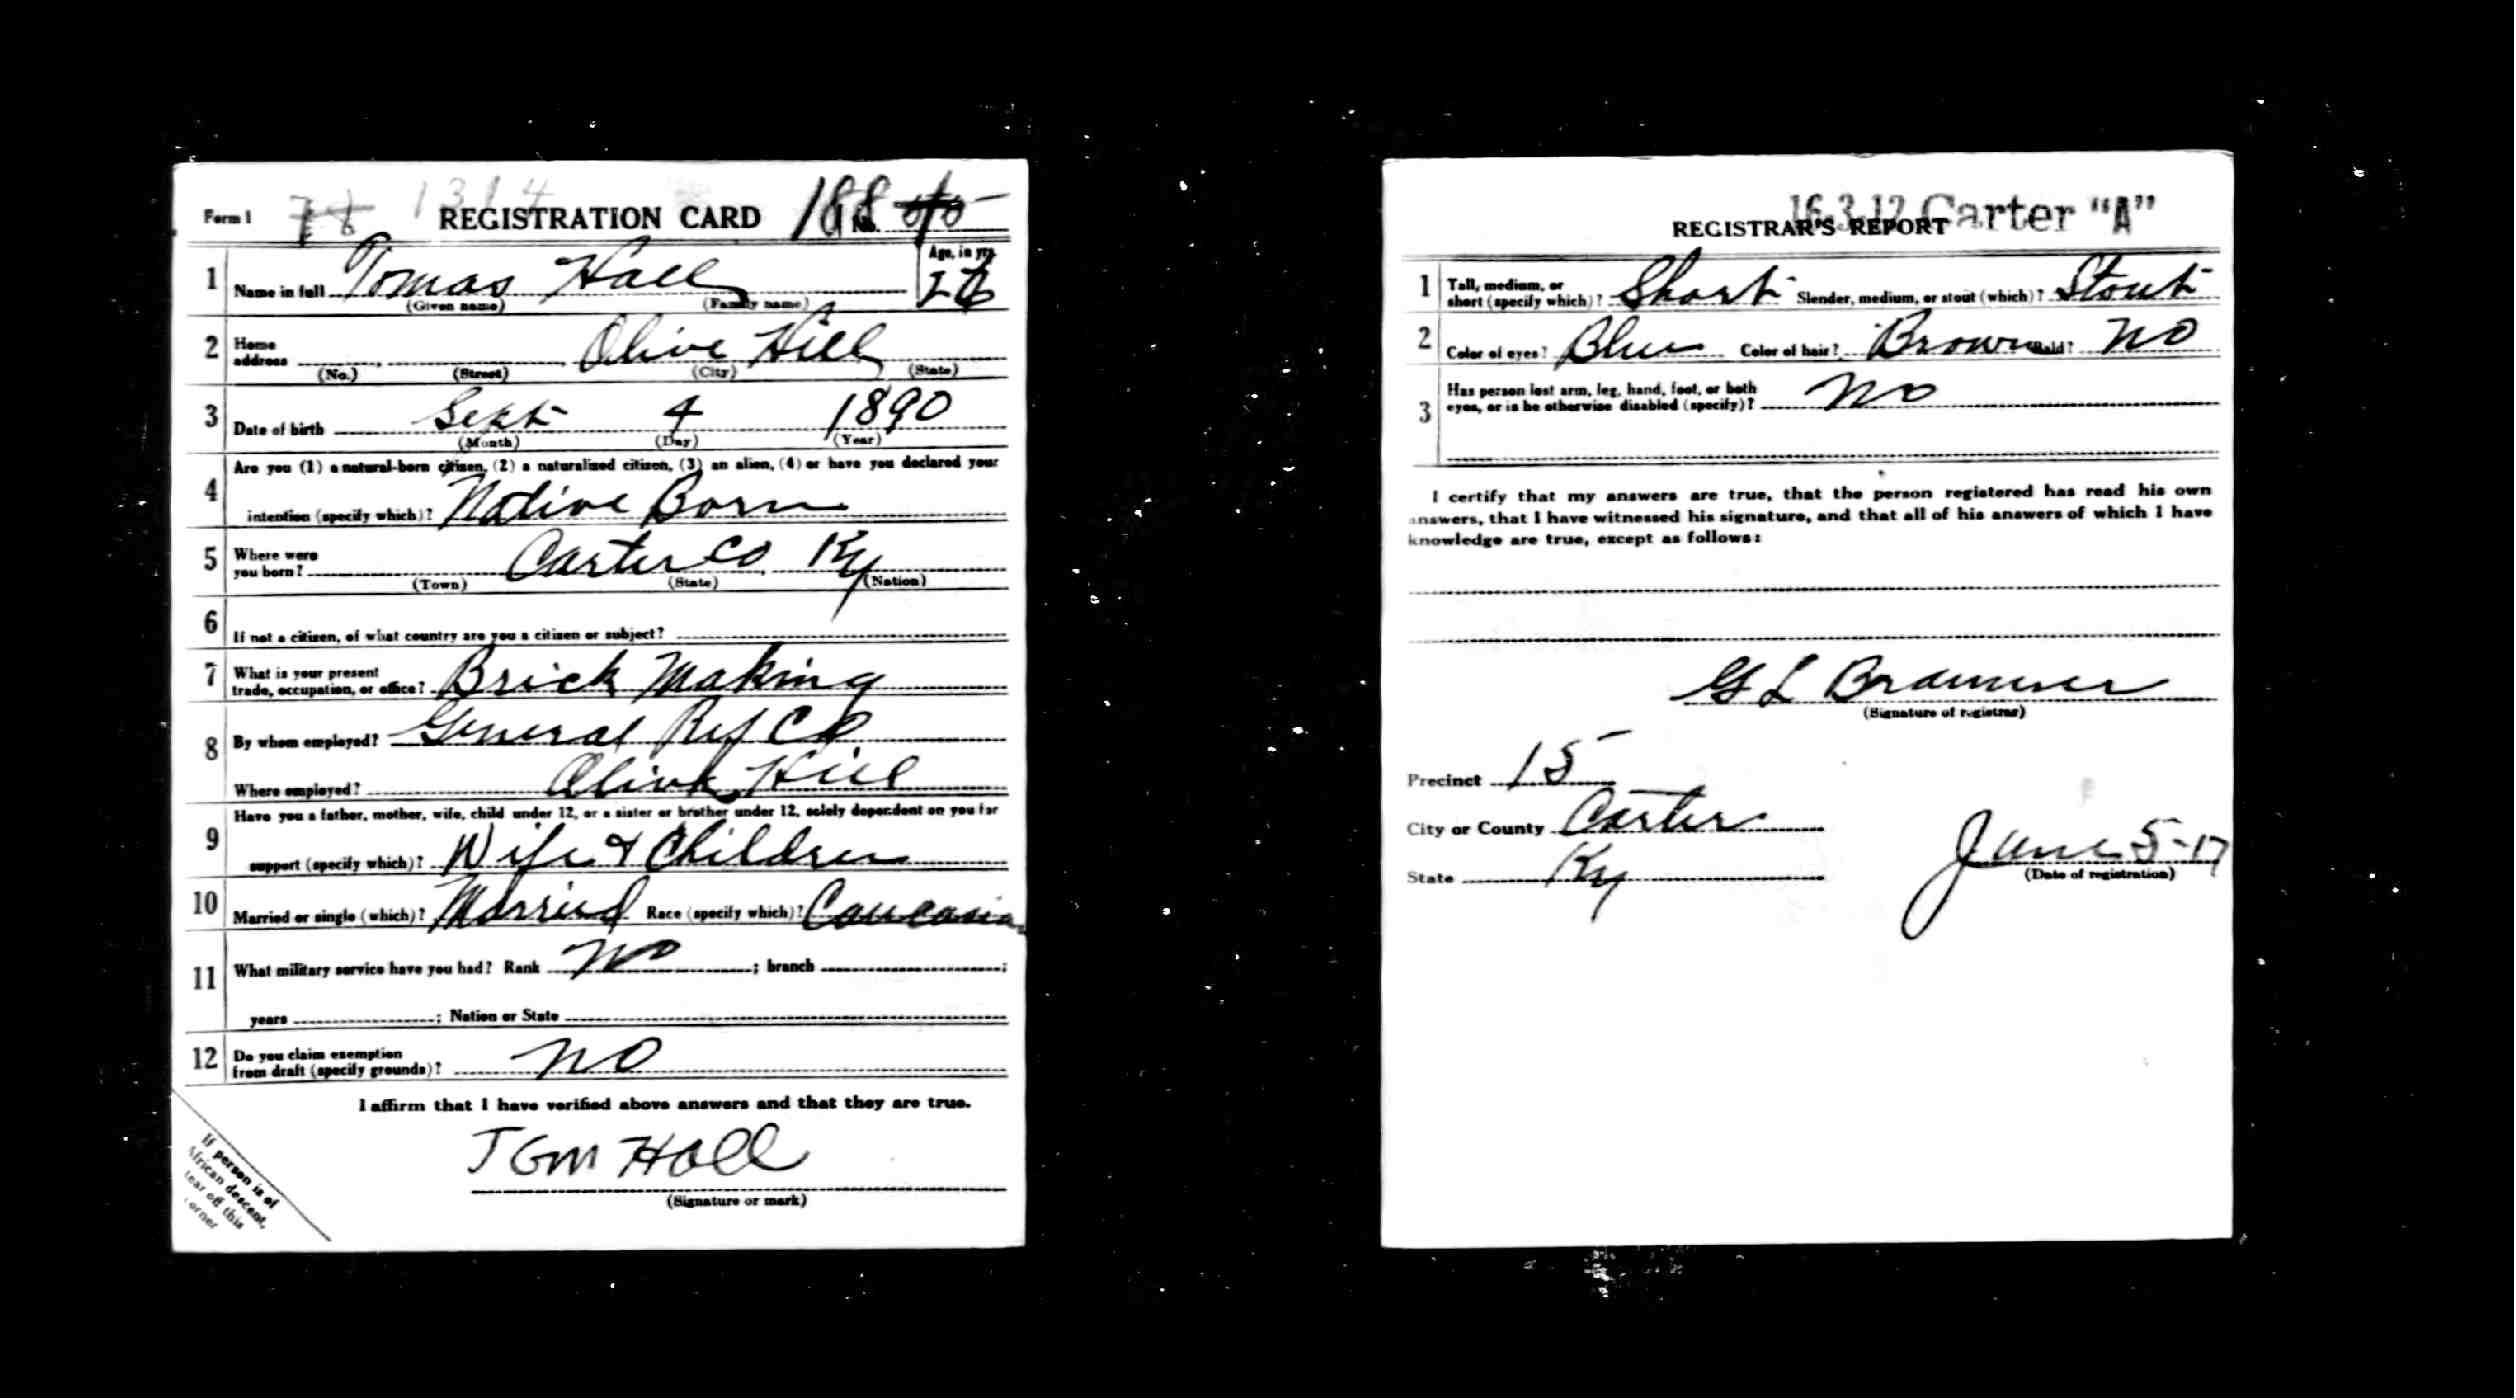 Form 1 1314 REGISTRATION CARD 188 No.
1 Name in full Tomas Hall Age, in yrs. 26
(Given name) (Family name)
2 Home address Olive Hill
(No.) (Street) (City) (State)
3 Date of birth Sept 4 1890
(Month) (Day) (Year)
Are you (1) a natural-born citizen, (2) a naturalized citizen, (3) an alien, (4) or have you declared your
4 intention (specify which)? Native Born
5 Where were you born? Carter Co, Ky
(Town) (State) (Nation)
6 If not a citizen, of what country are you a citizen or subject?
7 What is your present trade, occupation, or office? Brick Making
8 By whom employed? General Ref Co
Where employed? Olive Hill
Have you a father, mother, wife, child under 12, or a sister or brother under 12, solely dependent on you for
9 support (specify which)? Wife & Children
10 Married or single (which)? Married Race (specify which)? Caucasian
11 What military service have you had? Rank no ; branch ;
years ; Nation or State
12 Do you claim exemption from draft (specify grounds)? no
I affirm that I have verified above answers and that they are true.
Tom Hall
(Signature or mark)
If person is of
African descent,
tear off this
corner
16-3-12 Carter "A"
REGISTRAR'S REPORT
1 Tall, medium, or short (specify which)? Short Slender, medium, or stout (which)? Stout
2 Color of eyes? Blue Color of hair? Brown Bald? no
3 Has person lost arm, leg, hand, foot, or both eyes, or is he otherwise disabled (specify)? no
I certify that my answers are true, that the person registered has read his own
answers, that I have witnessed his signature, and that all of his answers of which I have
knowledge are true, except as follows:
G L Brammer
(Signature of registrar)
Precinct 15
City or County Carter
State Ky
June 5-17
(Date of registration)